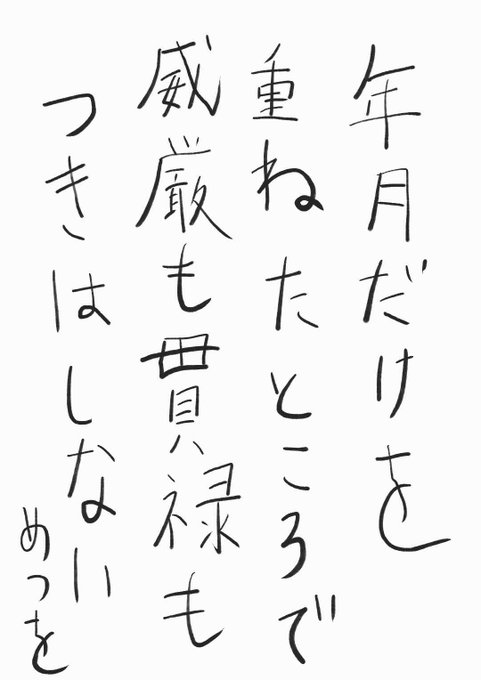 年月だけを
重ねたところで
威厳も貫禄も
つきはしない
めつを